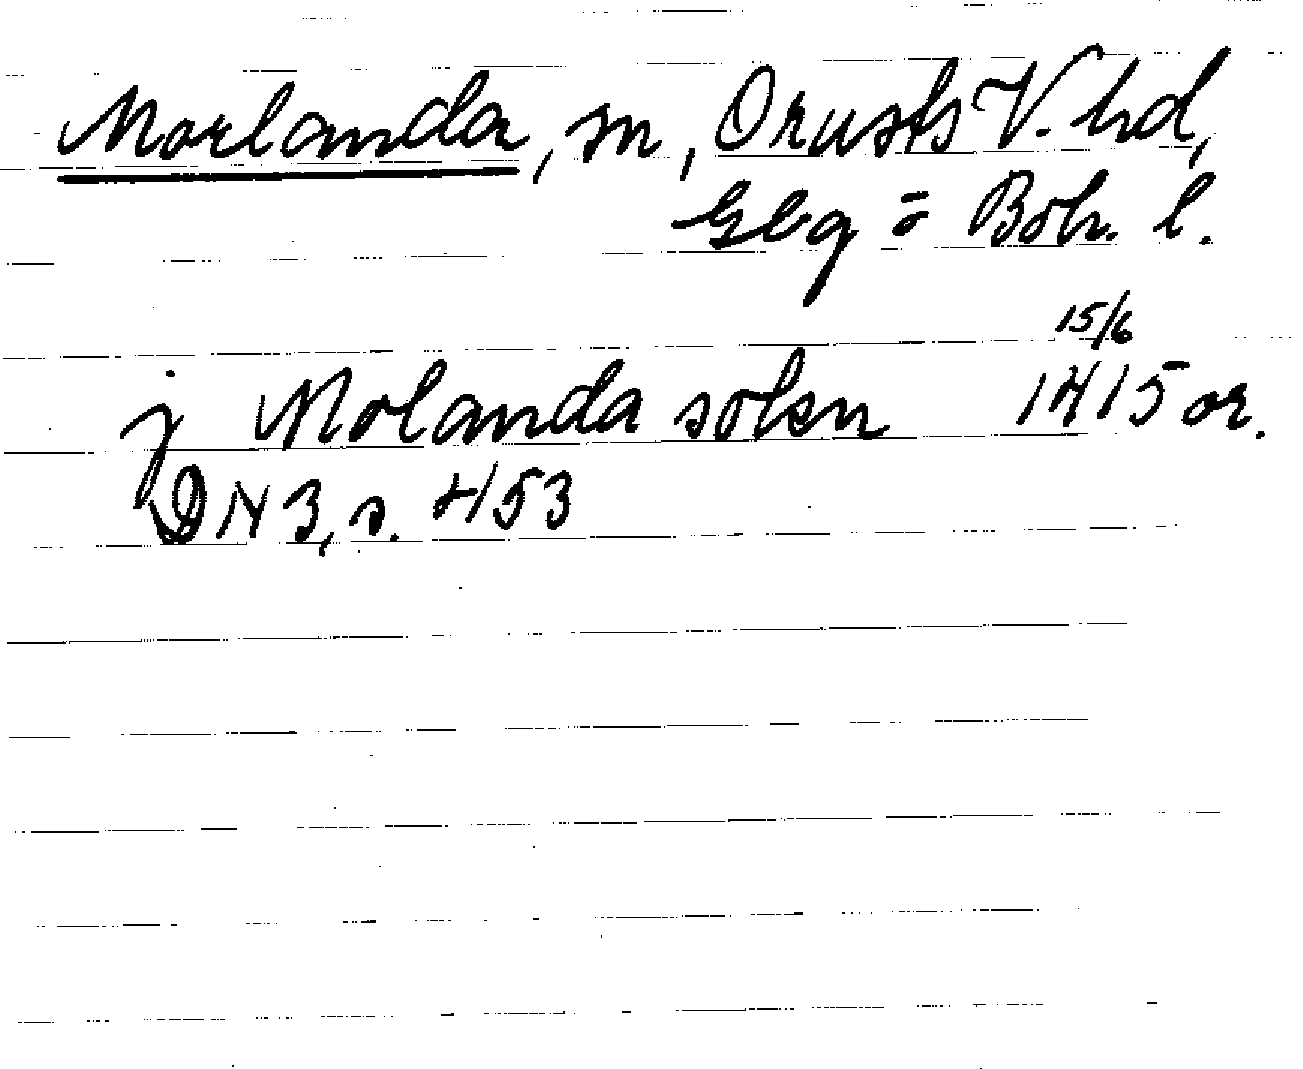 Morlanda, sn, Orusts V. hd,
Gbg o Boh. l.
15/6
j Molanda sokn 1415 or.
DN 3, s. 453